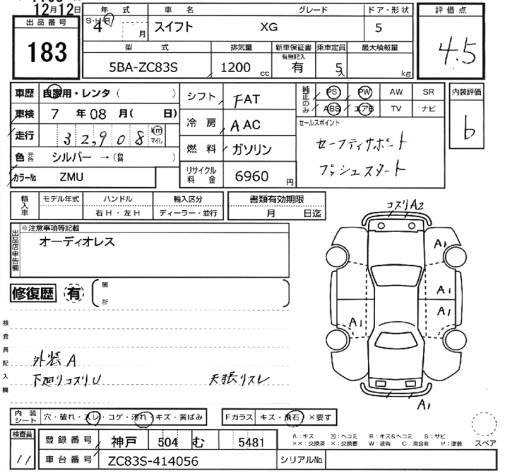 12月12日
出品番号
183
年式 車名 グレード ドア・形状 評価点
S・H・R
4 月 スイフト XG 5 4.5
型式 排気量 新車保証書 乗車定員 最大積載量
有無記入
5BA-ZC83S 1200 cc 有 5 kg
車歴 自家用・レンタ( )
車検 7年 08月( 日)
走行 32,908 km マイル
色 シルバー →( )
カラーNo ZMU
シフト FAT
冷房 AAC
燃料 ガソリン
リサイクル料金 6960円
純正のみ PS PW AW SR
ABS エアB TV ナビ
内装評価
b
セールスポイント
セーフティサポート
プッシュスタート
輸入車 モデル年式 ハンドル 輸入区分 書類有効期限
右H・左H ディーラー・並行 月 日迄
出品店申告欄
※注意事項等記載
オーディオレス
修復歴 有 箇所
検査員記入欄
外装A
下廻りコスリU 天張リスレ
コスリA2
A1
A1
A1
A1
A1
内装シート 穴・破れ・スレ・コゲ・汚れ・キズ・黄ばみ Fガラス キズ・飛石・×要す
検査員
11
登録番号 神戸 504 む 5481
車台番号 ZC83S-414056 シリアルNo.
A:キズ U:ヘコミ B:キズ&ヘコミ S:サビ
XX:交換済 X:交換要 W:波有 C:腐食有 P:塗装
スペア